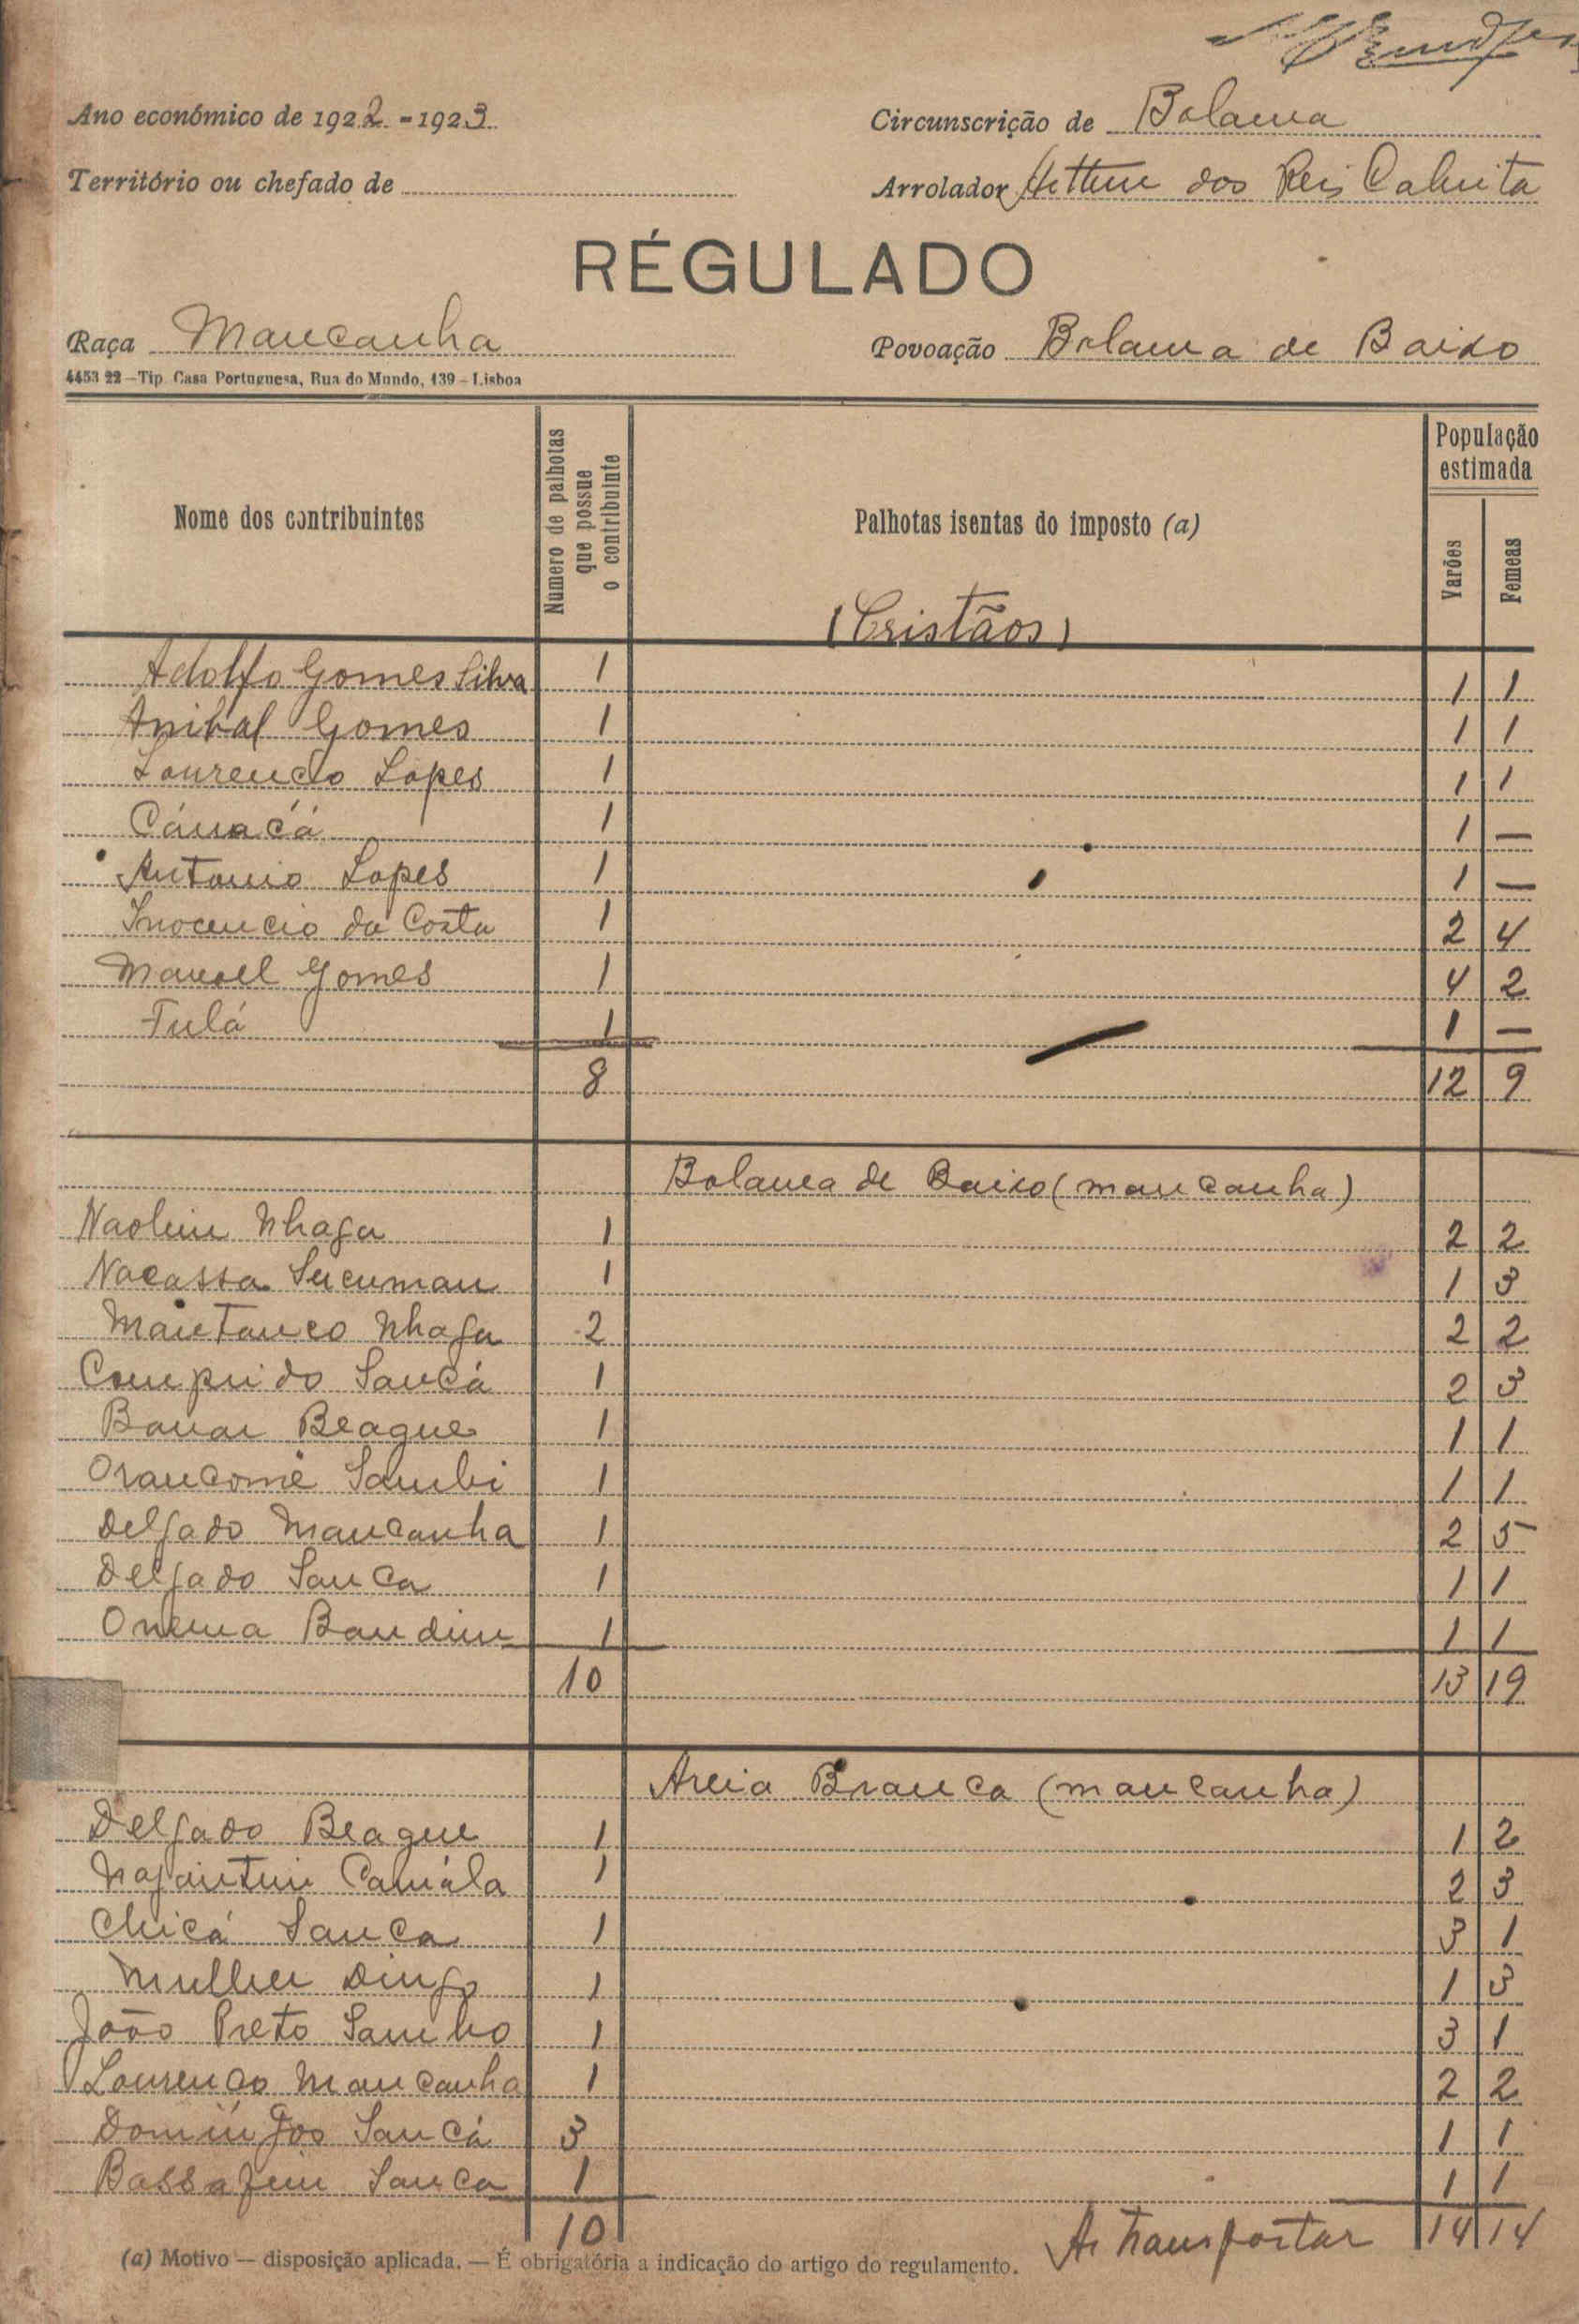 Ano económico de 1922-1923
Circunscrição de Bolama
Território ou chefado de
Arrolador dos Reis
RÉGULADO
Raça Mancanha
Povoação Bolama de Baixo
4453 22 – Tip. Casa Portuguesa, Rua do Mundo, 139 – Lisboa
Nome dos contribuintes
Número de palhotas que possue o contribuinte
Palhotas isentas do imposto (a)
População estimada
Varões
Femeas
(Cristãos)
Adolfo Gomes Silva 1 1 1
Anibal Gomes 1 1 1
Lourenço Lopes 1 1 1
Cánacá 1 1 —
Antonio Lopes 1 1 —
Inocencio da Costa 1 2 4
Manoel Gomes 1 4 2
Fulá 1 1 —
8 12 9
Bolama de Baixo (mancanha)
Naolim Nhaga 1 2 2
Nacassa Sucuman 1 1 3
Maintanco Nhaga 2 2 2
Comprido Sancá 1 2 3
Banar Beague 1 1 1
Orancomé Sambi 1 1 1
Delgado Mancanha 1 2 5
Delgado Sanca 1 1 1
Onema Bandim 1 1 1
10 13 19
Areia Branca (mancanha)
Delgado Beague 1 1 2
Camála 1 2 3
Chicá Sanca 1 3 1
Mulher Dingo 1 1 3
João Preto Sambo 1 3 1
Lourenço Mancanha 1 2 2
Domingos Sancá 3 1 1
Bassafim Sanca 1 1 1
10 A transportar 14 14
(a) Motivo — disposição aplicada. — É obrigatória a indicação do artigo do regulamento.